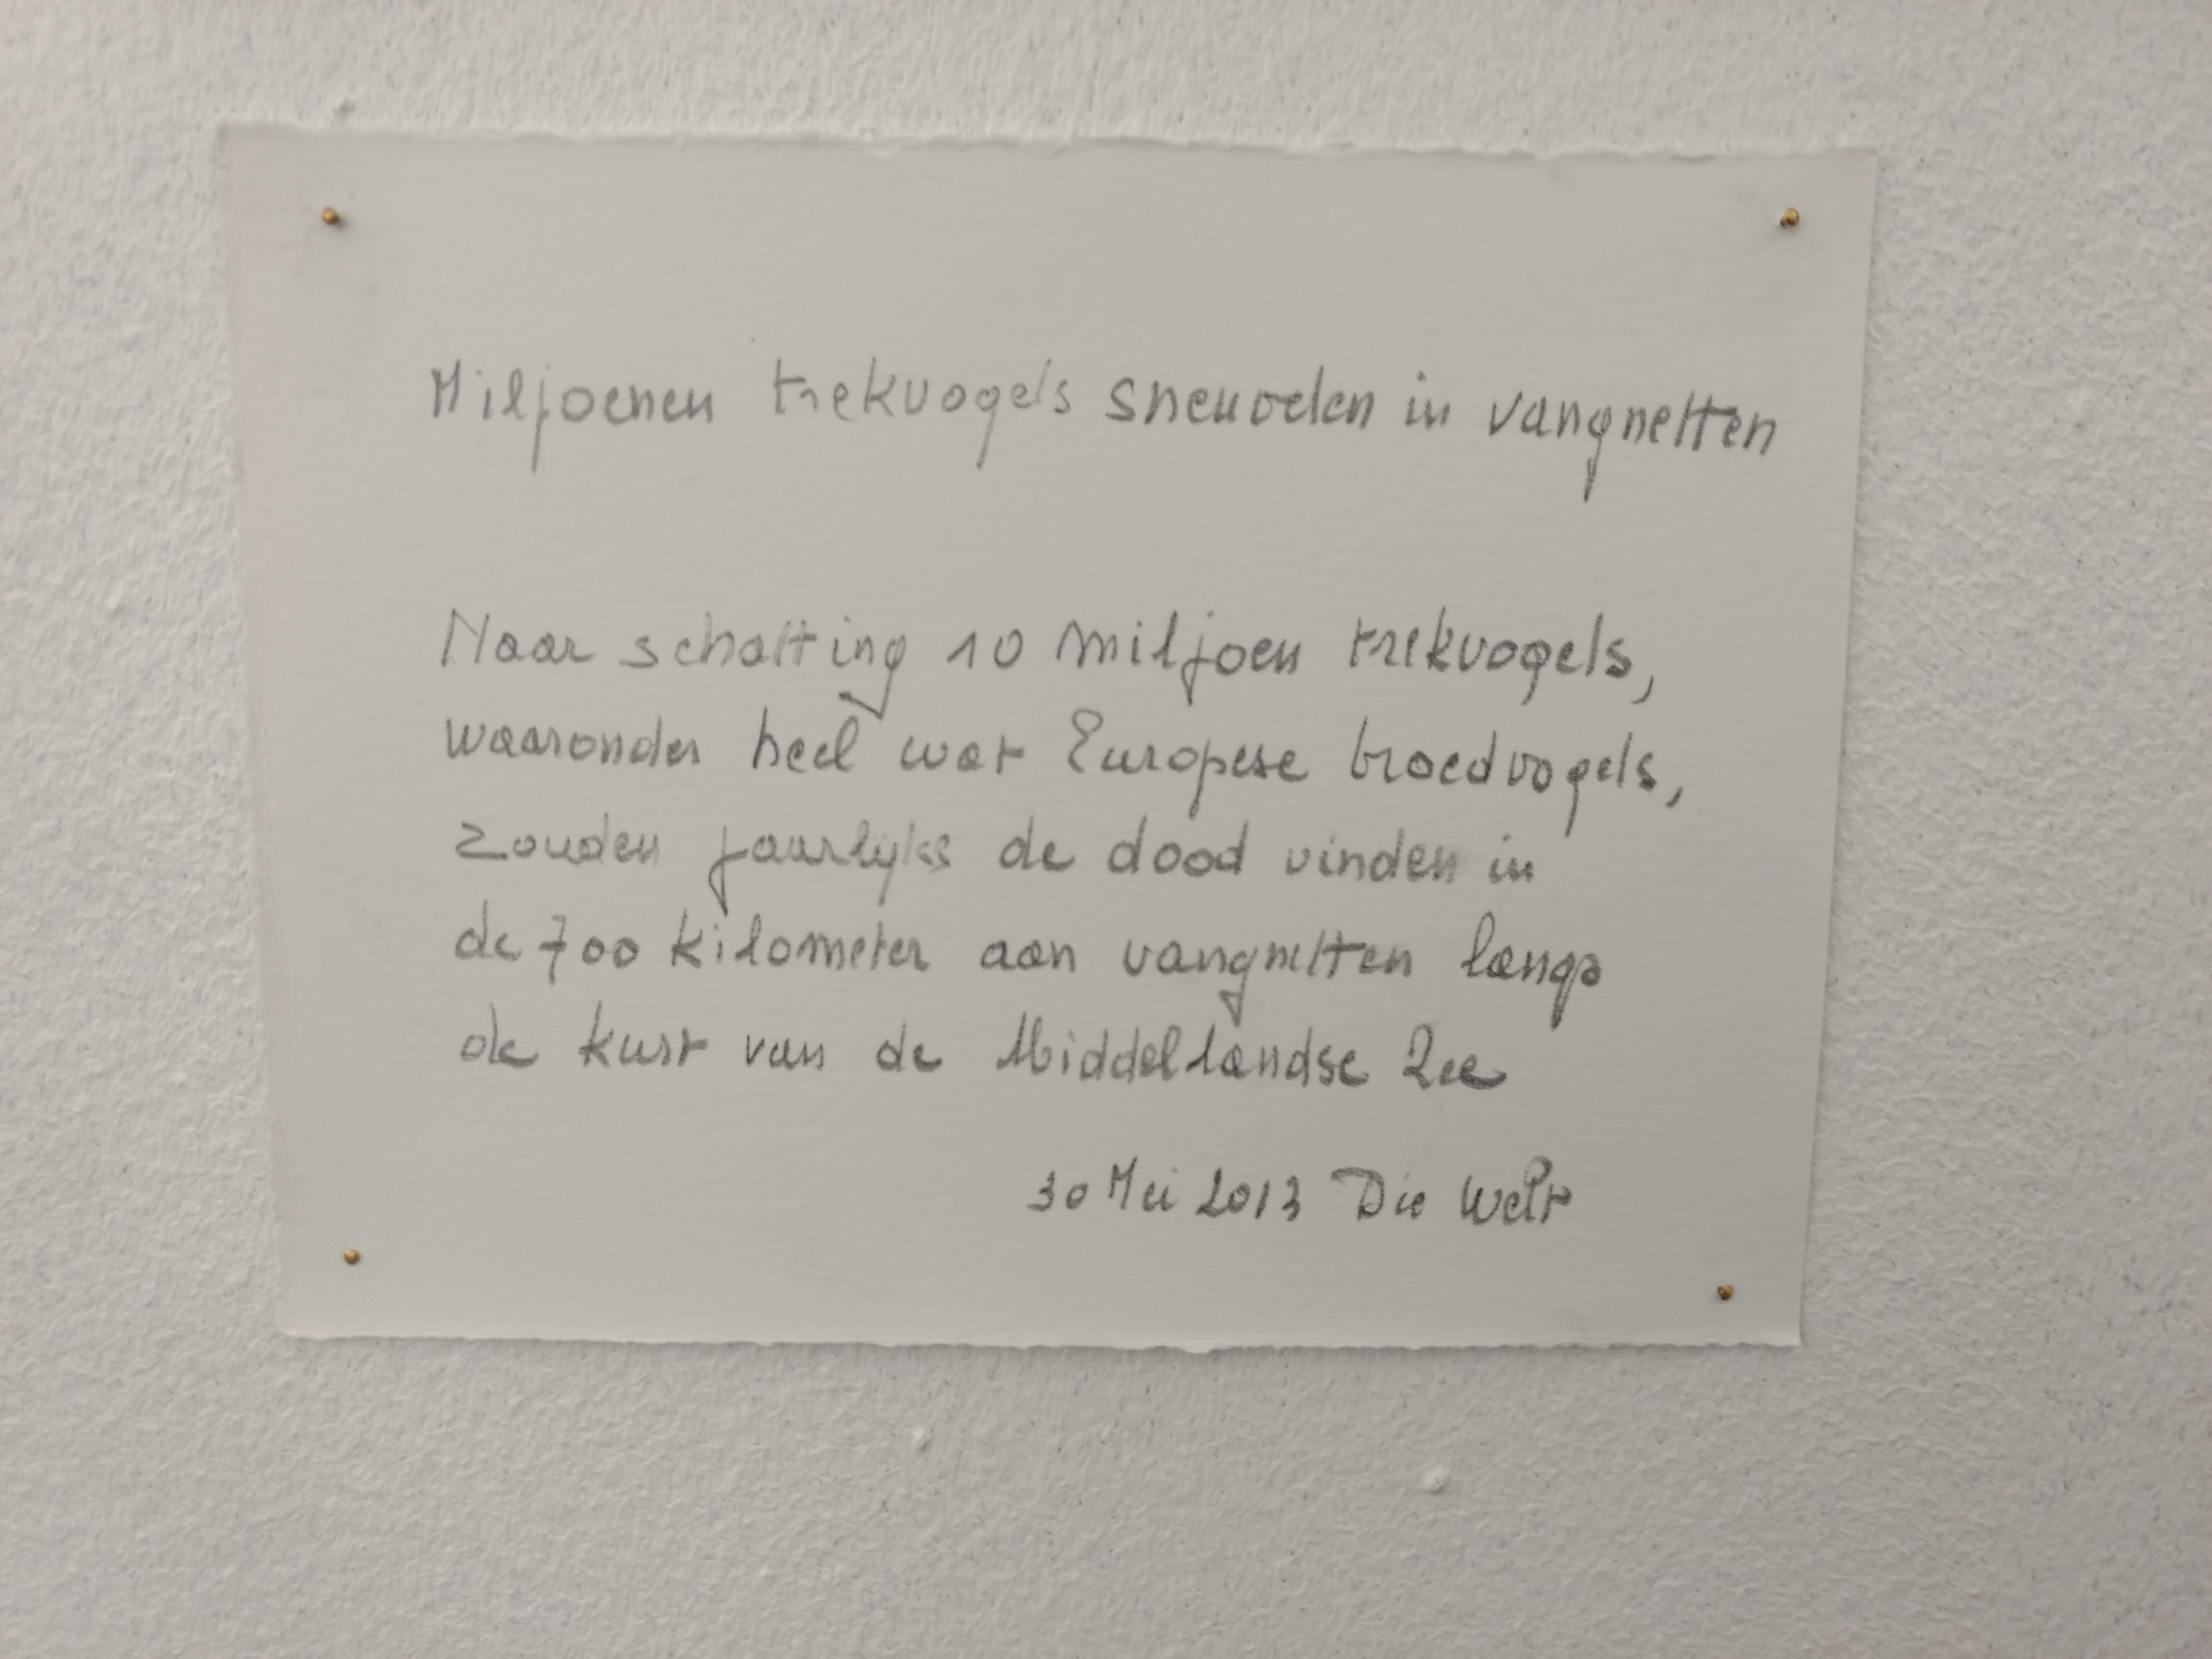 Miljoenen trekvogels sneuvelen in vangnetten
Naar schatting 10 miljoen trekvogels,
waaronder heel wat Europese broedvogels,
zouden jaarlijks de dood vinden in
de 700 kilometer aan vangnetten langs
de kust van de Middellandse Zee
30 Mei 2013 Die Welt